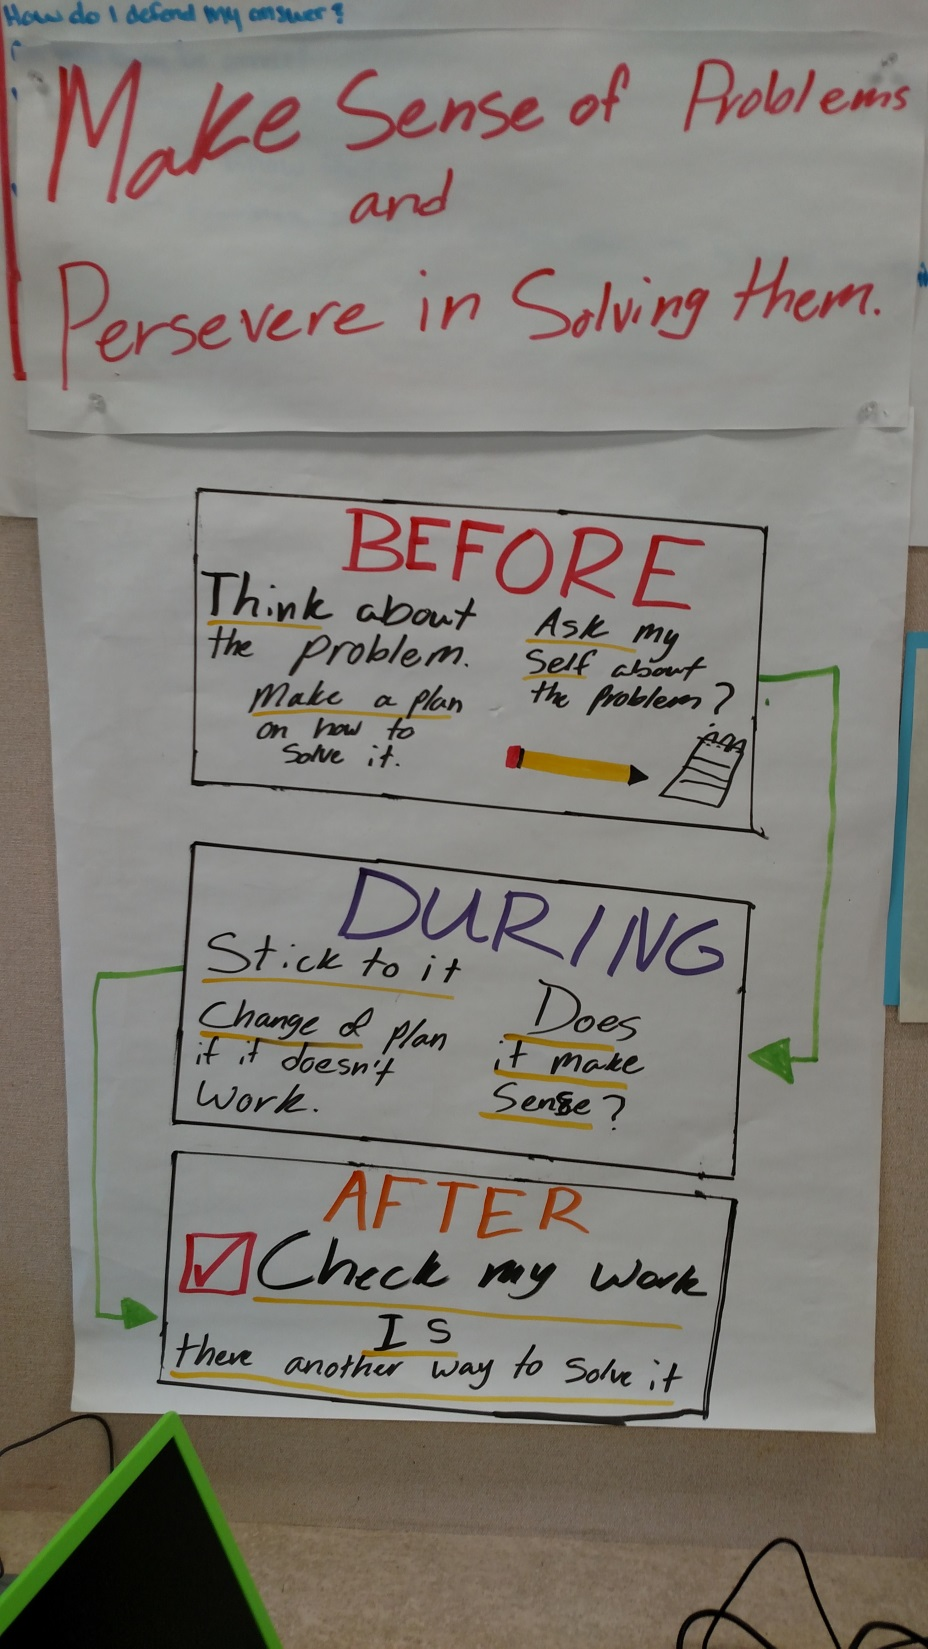 How do I defend my answer?
Make Sense of Problems
and
Persevere in Solving them.
BEFORE
Think about
the problem.
Make a plan
on how to
solve it.
Ask my
Self about
the problem?
DURING
Stick to it
Change of plan
if it doesn't
work.
Does
it make
Sense?
AFTER
Check my work
IS
there another way to solve it